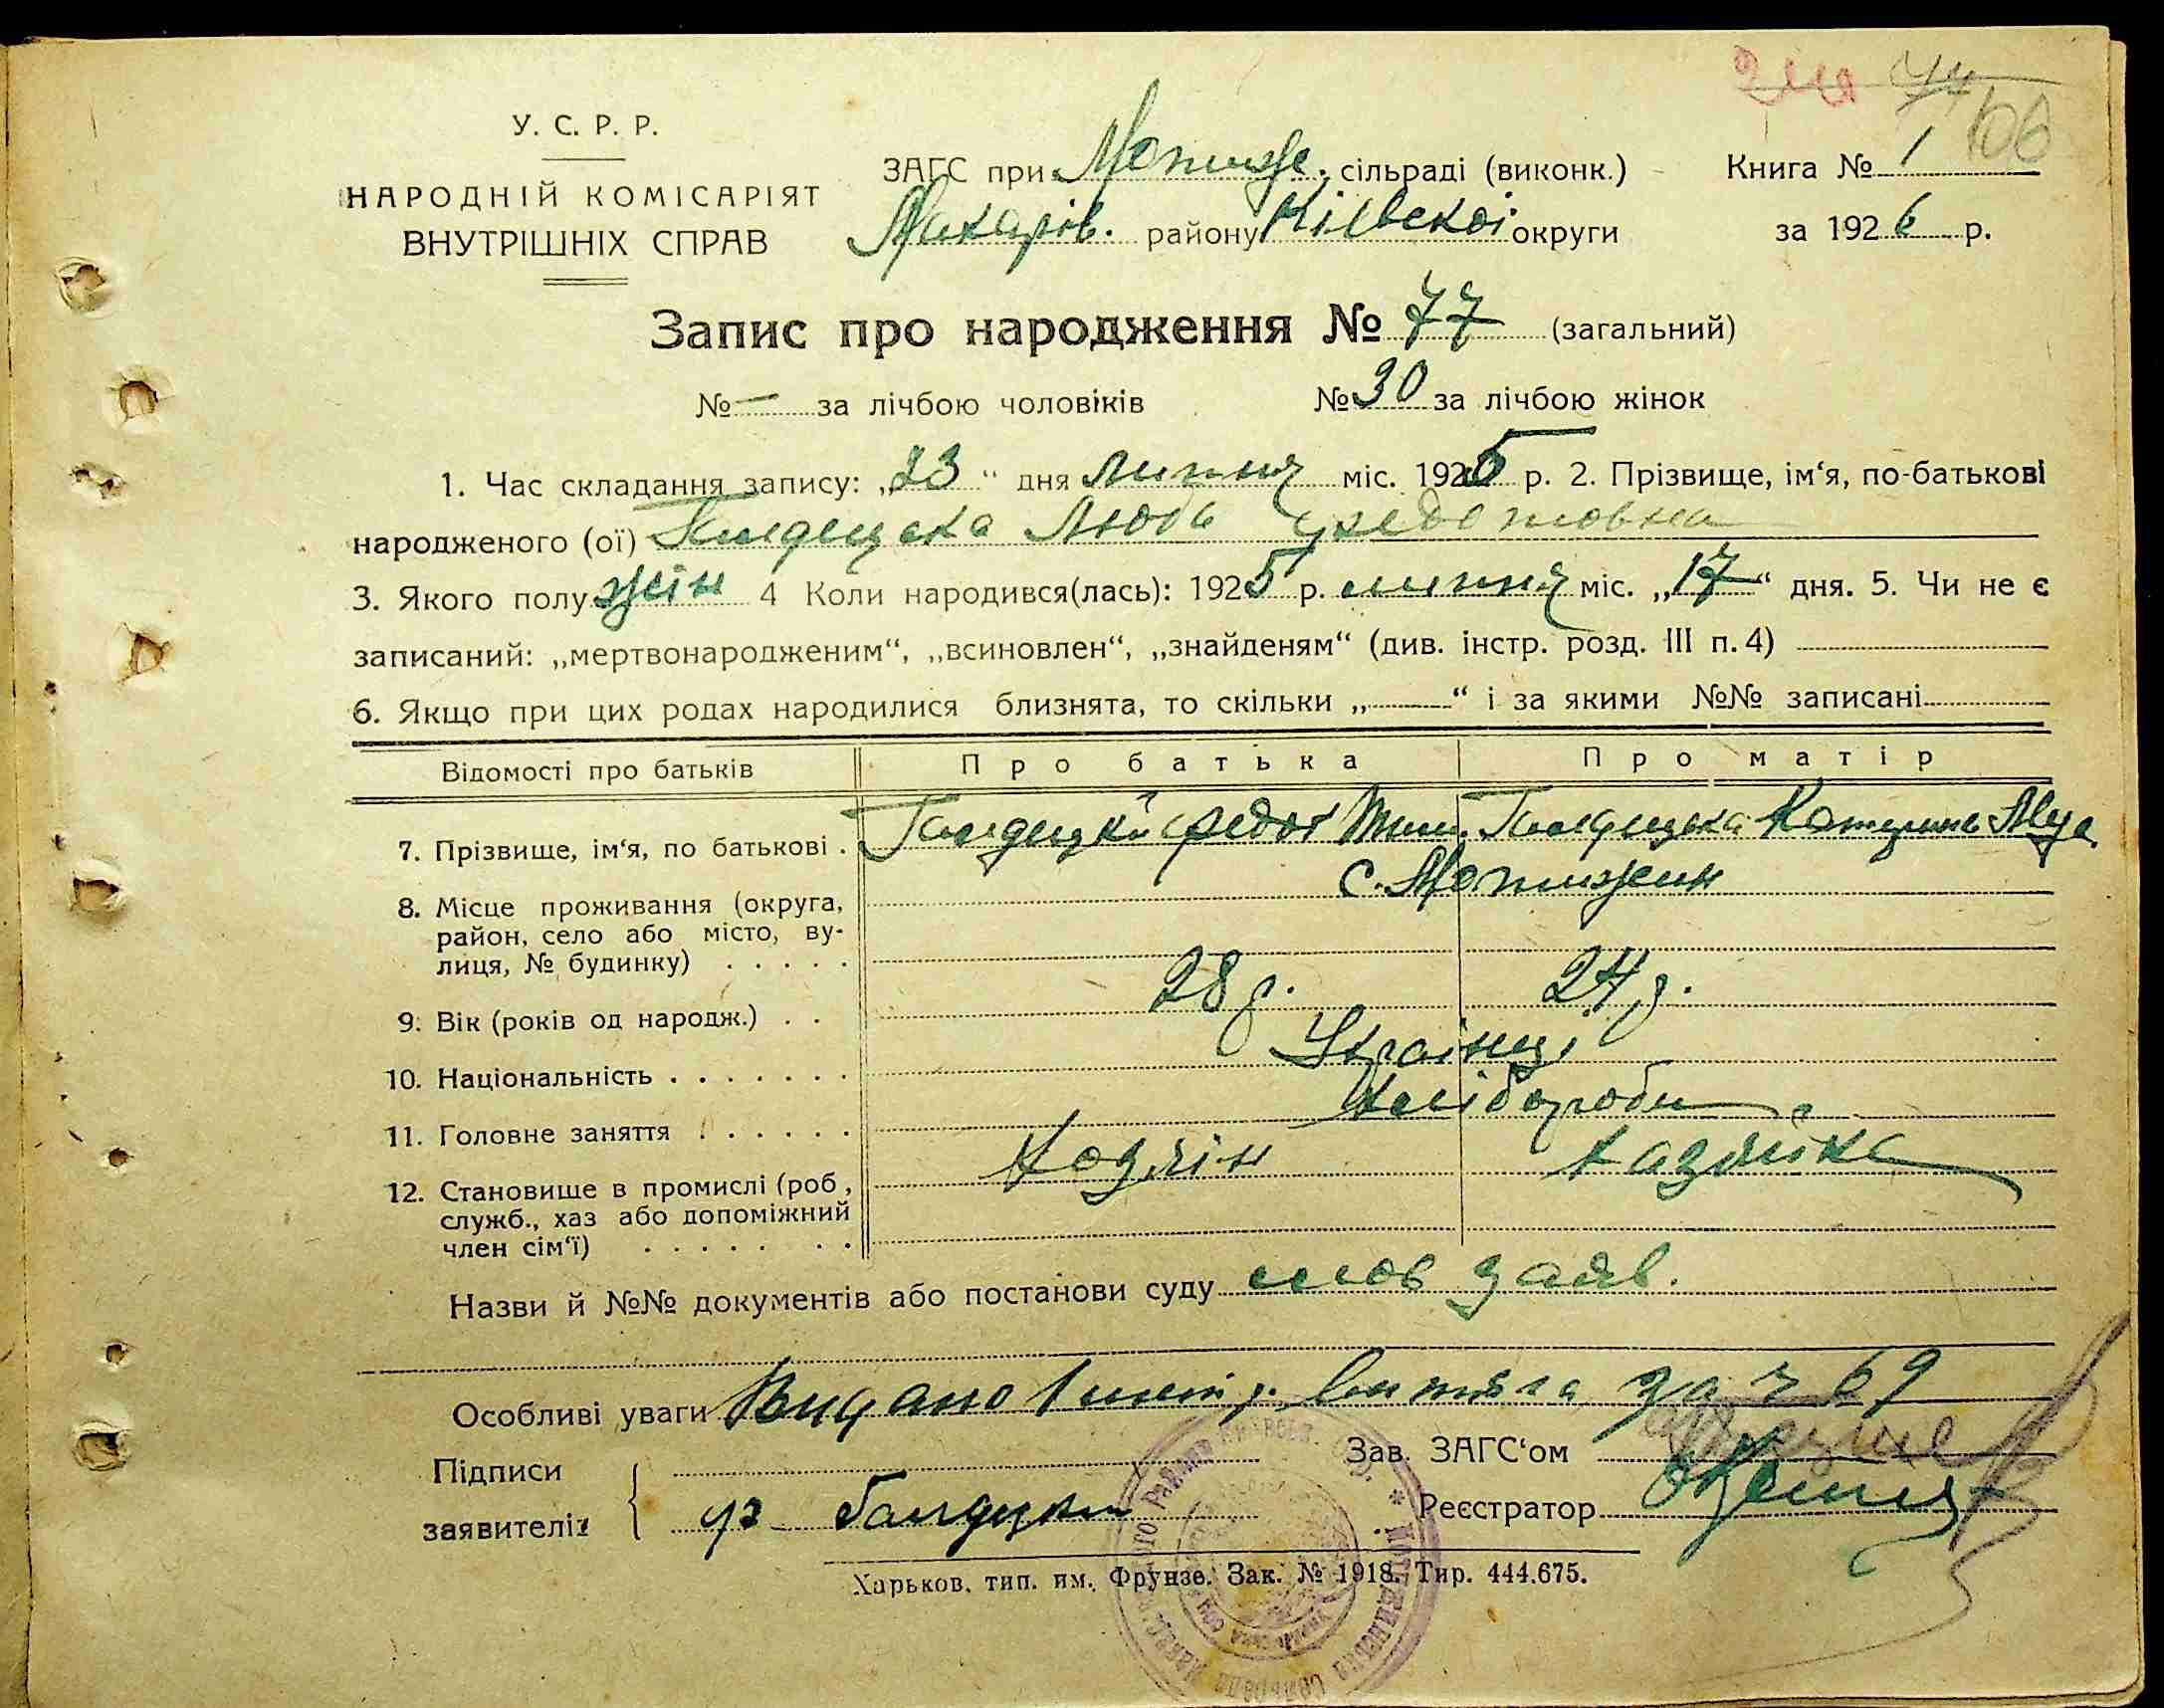 У. С. Р. Р.
НАРОДНІЙ КОМІСАРІЯТ
ВНУТРІШНІХ СПРАВ
ЗАГС при Мотиже. сільраді (виконк.)
Макарів. району Київської округи
Книга № 1
за 1926 р.
66
Запис про народження № 77 (загальний)
№ — за лічбою чоловіків № 30 за лічбою жінок
1. Час складання запису: „23“ дня липня міс. 1926 р. 2. Прізвище, ім‘я, по-батькові
народженого (ої) Галдецька Любь Федотовна
3. Якого полу жін 4 Коли народився(лась): 1925 р. липня міс. „17“ дня. 5. Чи не є
записаний: „мертвонародженим“, „всиновлен“, „знайденям“ (див. інстр. розд. III п. 4)
6. Якщо при цих родах народилися близнята, то скільки „—“ і за якими №№ записані
Відомості про батьків Про батька Про матір
7. Прізвище, ім‘я, по батькові . Галдецкий Федот Тим. Галдецька Катерина
8. Місце проживання (округа, с. Мотижин
район, село або місто, ву-
лиця, № будинку) . . . . .
9. Вік (років од народж.) . . 28 р. 24 р.
10. Національність . . . . . . . Українці
11. Головне заняття . . . . . . Хлібороби
12. Становище в промислі (роб, Хозяїн Хазяйка
служб., хаз або допоміжний
член сім‘ї) . . . . . . .
Назви й №№ документів або постанови суду слов заяв.
Особливі уваги Видано витяга за ч 69
Зав. ЗАГС‘ом
Підписи
заявителів Галдецкий
Реєстратор
Харьков. тип. им. Фрунзе. Зак. № 1918. Тир. 444.675.